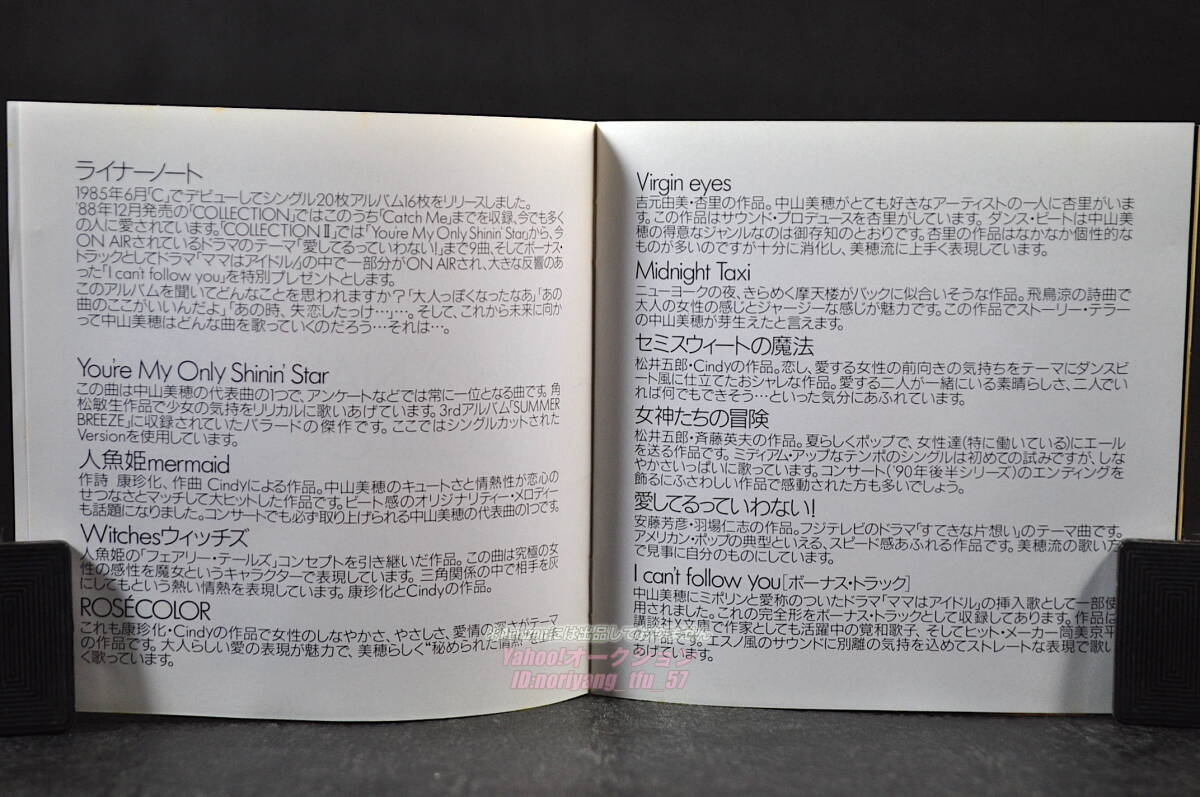 ライナーノート
1985年6月「C」でデビューしてシングル20枚アルバム16枚をリリースしました。
'88年12月発売の「COLLECTION」ではこのうち「Catch Me」までを収録、今でも多く
の人に愛されています。「COLLECTION Ⅱ」では「You're My Only Shinin' Star」から、今
ON AIRされているドラマのテーマ「愛してるっていわない!」まで9曲、そしてボーナス・
トラックとしてドラマ「ママはアイドル!」の中で一部分がON AIRされ、大きな反響のあ
った「I can't follow you」を特別プレゼントとします。
このアルバムを聞いてどんなことを思われますか?「大人っぽくなったなあ」「あの
曲のここがいいんだよ」「あの時、失恋したっけ…」…。そして、これから未来に向か
って中山美穂はどんな曲を歌っていくのだろう…それは…。
You're My Only Shinin' Star
この曲は中山美穂の代表曲の1つで、アンケートなどでは常に一位となる曲です。角
松敏生作品で少女の気持をリリカルに歌いあげています。3rdアルバム「SUMMER
BREEZE」に収録されていたバラードの傑作です。ここではシングルカットされた
Versionを使用しています。
人魚姫mermaid
作詩 康珍化、作曲 Cindyによる作品。中山美穂のキュートさと情熱性が恋心の
せつなさとマッチして大ヒットした作品です。ビート感のオリジナリティー・メロディー
も話題になりました。コンサートでも必ず取り上げられる中山美穂の代表曲の1つです。
Witchesウィッチズ
人魚姫の「フェアリー・テールズ」コンセプトを引き継いだ作品。この曲は究極の女
性の感性を魔女というキャラクターで表現しています。三角関係の中で相手を灰
にしてもという熱い情熱を表現しています。康珍化とCindyの作品。
ROSÉCOLOR
これも康珍化・Cindyの作品で女性のしなやかさ、やさしさ、愛情の深さがテーマ
の作品です。大人らしい愛の表現が魅力で、美穂らしく“秘められた情熱
く歌っています。
Virgin eyes
吉元由美・杏里の作品。中山美穂がとても好きなアーティストの一人に杏里がいま
す。この作品はサウンド・プロデュースを杏里がしています。ダンス・ビートは中山美
穂の得意なジャンルなのは御存知のとおりです。杏里の作品はなかなか個性的な
ものが多いのですが十分に消化し、美穂流に上手く表現しています。
Midnight Taxi
ニューヨークの夜、きらめく摩天楼がバックに似合いそうな作品。飛鳥涼の詩曲で
大人の女性の感じとジャージーな感じが魅力です。この作品でストーリー・テラー
の中山美穂が芽生えたと言えます。
セミスウィートの魔法
松井五郎・Cindyの作品。恋し、愛する女性の前向きの気持ちをテーマにダンスビ
ート風に仕立てたおシャレな作品。愛する二人が一緒にいる素晴らしさ、二人でい
れば何でもできそう…といった気分にあふれています。
女神たちの冒険
松井五郎・斉藤英夫の作品。夏らしくポップで、女性達(特に働いている)にエール
を送る作品です。ミディアム・アップなテンポのシングルは初めての試みですが、しな
やかさいっぱいに歌っています。コンサート('90年後半シリーズ)のエンディングを
飾るにふさわしい作品で感動された方も多いでしょう。
愛してるっていわない!
安藤芳彦・羽場仁志の作品。フジテレビのドラマ「すてきな片想い」のテーマ曲です。
アメリカン・ポップの典型といえる、スピード感あふれる作品です。美穂流の歌い方
で見事に自分のものにしています。
I can't follow you[ボーナス・トラック]
中山美穂にミポリンと愛称のついたドラマ「ママはアイドル」の挿入歌として一部使
用されました。これの完全形をボーナス・トラックとして収録してあります。作品は
講談社X文庫で作家としても活躍中の覚和歌子、そしてヒット・メーカー筒美京平
作品です。エスノ風のサウンドに別離の気持を込めてストレートな表現で歌い
あげています。
Yahoo!オークション
ID:noriyang_tfu_57